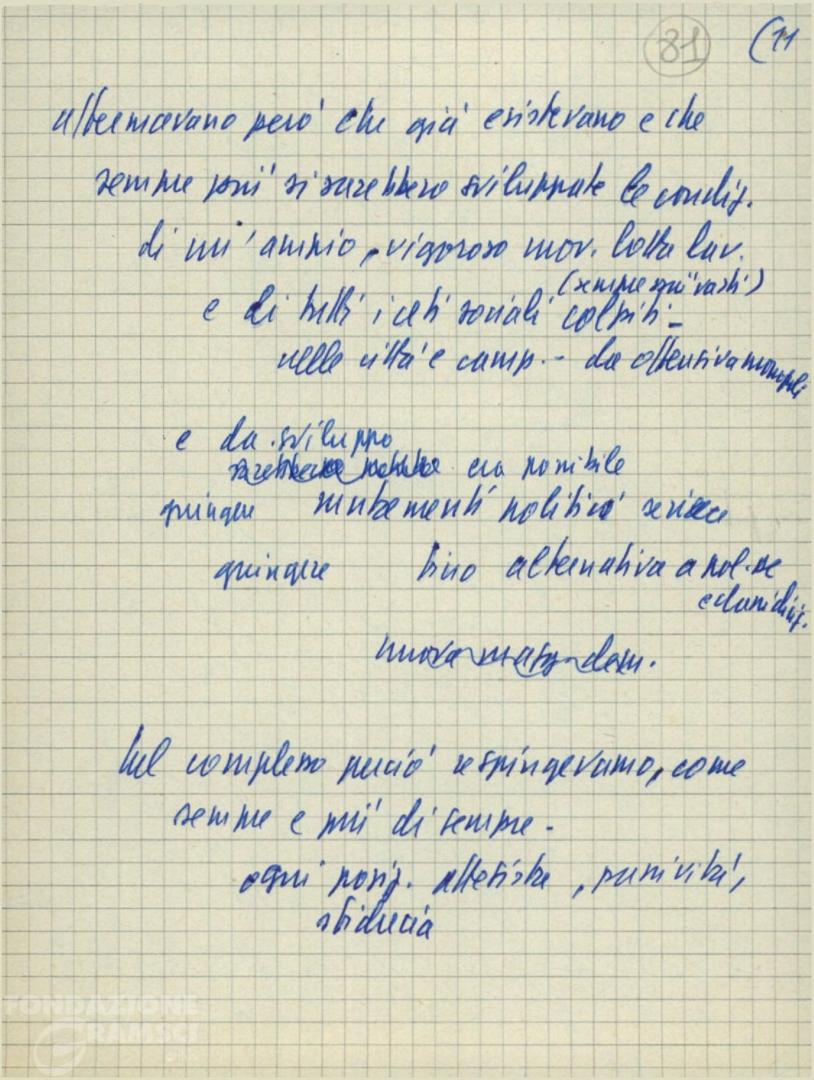 81 (11
affermavano però che già esistevano e che
sempre più si sarebbero sviluppate le condiz.
di un'ampio, vigoroso mov. lotta lav.
(sempre più vasti)
e di tutti i ceti sociali colpiti -
nelle città e camp. - da offensiva monopoli
e da sviluppo
era possibile
spingere mutamenti politici
spingere fino alternativa a pol.
nuova magg. dem.
Nel complesso perciò respingevamo, come
sempre e più di sempre -
ogni posiz. attesista, passività,
sfiducia
FONDAZIONE
GRAMSCI